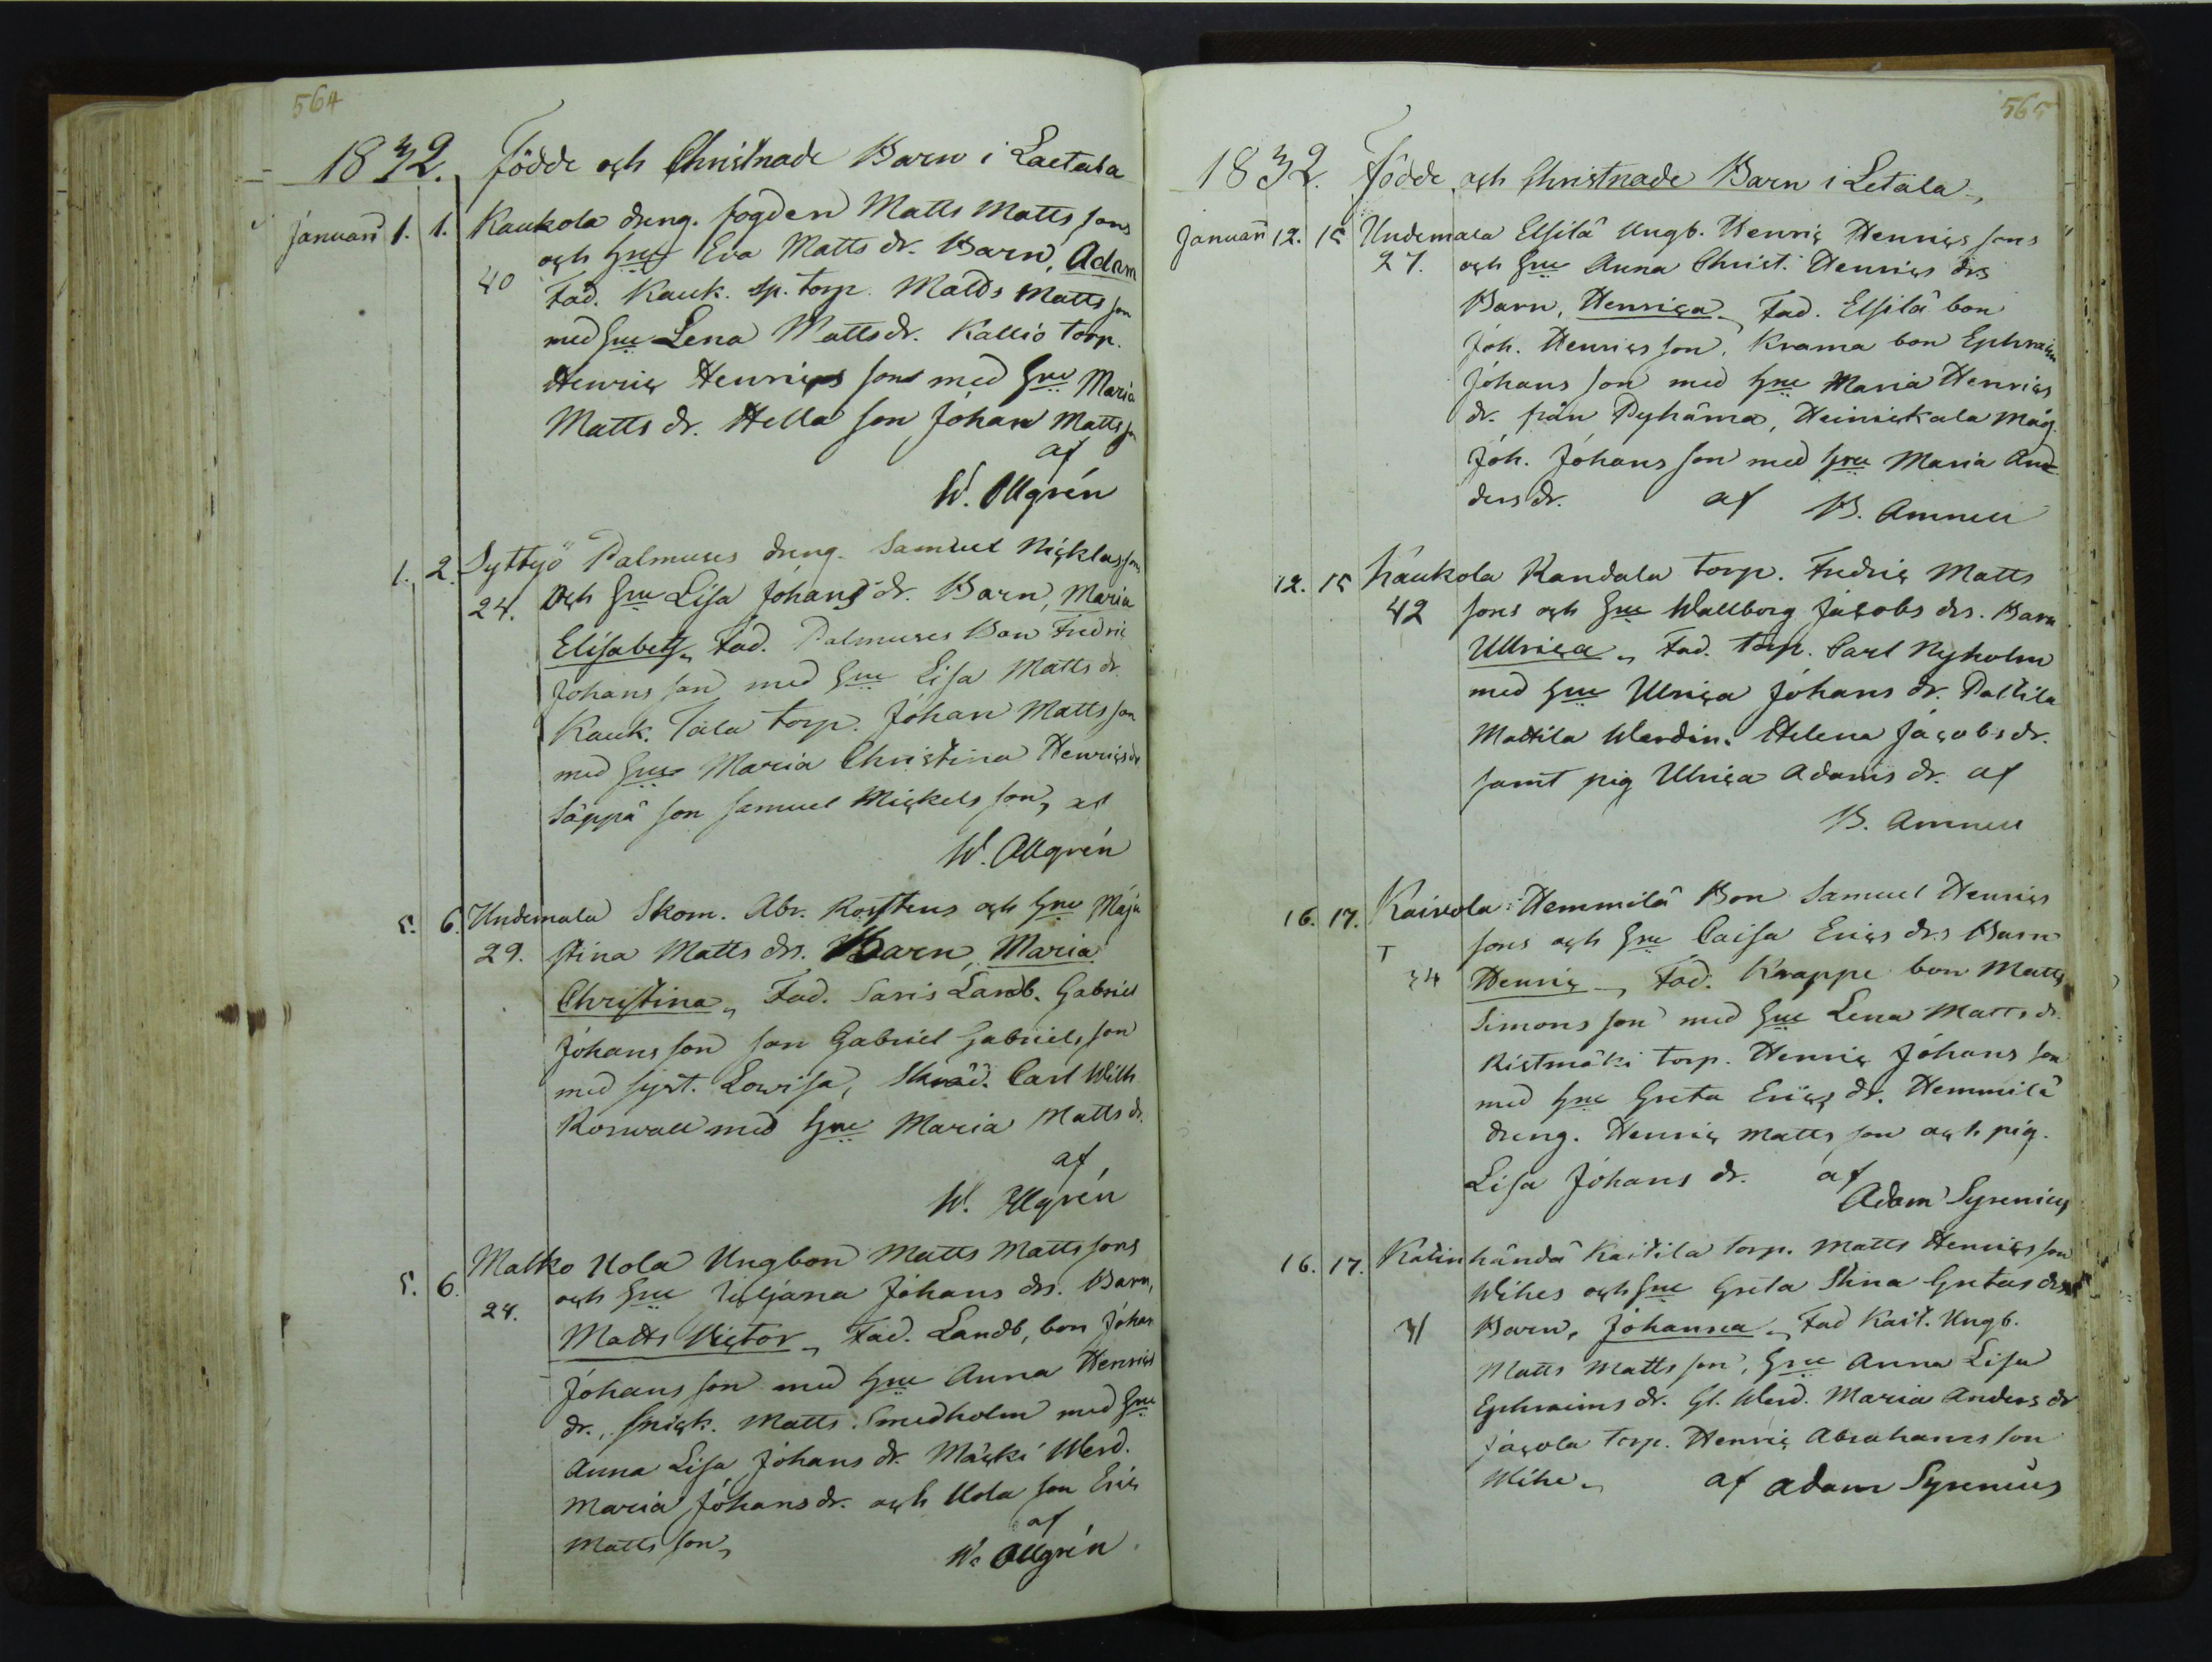 564
1832. Födde och Christnade Barn i Laetala
Januarii 1. 1. Kaukola dreng. fogden Matts Matts sons
och Hu Eva Matts dr. Barn, Adam
40 Fad. Kauk. sp. torp. Matts Matts son
med Hu Lena Matts dr. Kallio torp.
Henric Henrics sons med Hu Maria
Matts dr. Hella son Johan Matts son
af
W. Allgrén
1. 2. Syttyö Palmuses dreng. Samuel Nicklas sons
24. Och Hu Lisa Johans dr. Barn, Maria
Elisabeth, Fad. Palmuses Bon Fredric
Johans son med Hu Lisa Matts dr.
Kauk. Tala torp. Johan Matts son
med Hu Maria Christina Henrics dr.
Säppä son Samuel Mickels son, af
W. Allgrén
5. 6. Undemala Skom. Abr. Rostens och Hu Maja
29. Stina Matts drs. Barn, Maria
Christina, Fad. Saris Landb. Gabriel
Johans son son Gabriel Gabriels son
med syst. Lowisa, Skräd. Carl Wilh
Roswall med Hu Maria Matts dr.
af
W. Allgrén
Malko Uola Ungbon Matts Matts sons
5. 6. och Hu Uljana Johans drs. Barn,
24. Matts Victor, Fad. Landb, bon Johan
Johans son med Hu Anna Henrics
dr., Snick. Matts Smedholm med Hu
Anna Lisa Johans dr. Mäcki Werd.
Maria Johans dr. och Uola son Eric
af
Matts son, W. Allgrén
565
1832. Födde och Christnade Barn i Letala,
Januarii 12. 15 Undemala Elsilä Ungb. Henric Henrics sons
27. och Hu Anna Christ. Henrics drs
Barn, Henrica, Fad. Elsilä bon
Joh. Henrics son, Krama bon Ephraim
Johans son med Hu Maria Henrics
dr. från Pyhäma, Heinickala Mäg.
Joh. Johans son med Hu Maria An
ders dr. af B. Amnell
12. 15 Kaukola Kandala torp. Fredric Matts
42 sons och Hu Wallborg Jacobs drs. Barn
Ullrica, Fad. torp. Carl Nyholm
med Hu Ulrica Johans dr. Pallila
Mattila Werdin. Helena Jacobs dr.
samt pig Ulrica Adams dr. af
B. Amnell
16. 17. Kaivola Hemmilä Bon Samuel Henrics
sons och Hu Caisa Erics drs Barn
34 Henric, Fad. Knappe bon Matts
Simons son med Hu Lena Matts dr.
Ristmäki torp. Henric Johans son
med Hu Greta Erics dr. Hemmilä
dreng. Henric Matts son och pig.
Lisa Johans dr. af
Adam Syrenius
16. 17. Katinhändä Kaitila torp. Matts Henrics son
Wihes och Hu Greta Stina Gretas drs
31 Barn, Johanna, Fad Kait. Ungb.
Matts Matts son, Hu Anna Lisa
Ephraims dr. Gl. Werd. Maria Anders dr
Jacola torp. Henric Abrahams son
Wihe, af Adam Syrenius